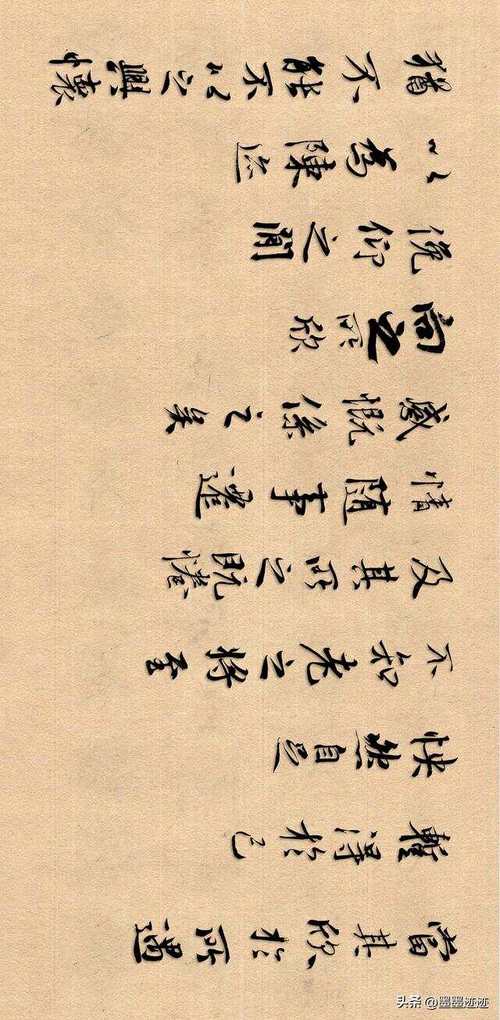 當其欣於所遇
暫得於己
快然自足
不知老之將至
及其所之既惓
情随事遷
感慨係之矣
向之所欣
俛仰之間
以為陳迹
猶不能不以之興懷
头条 @墨墨迹迹